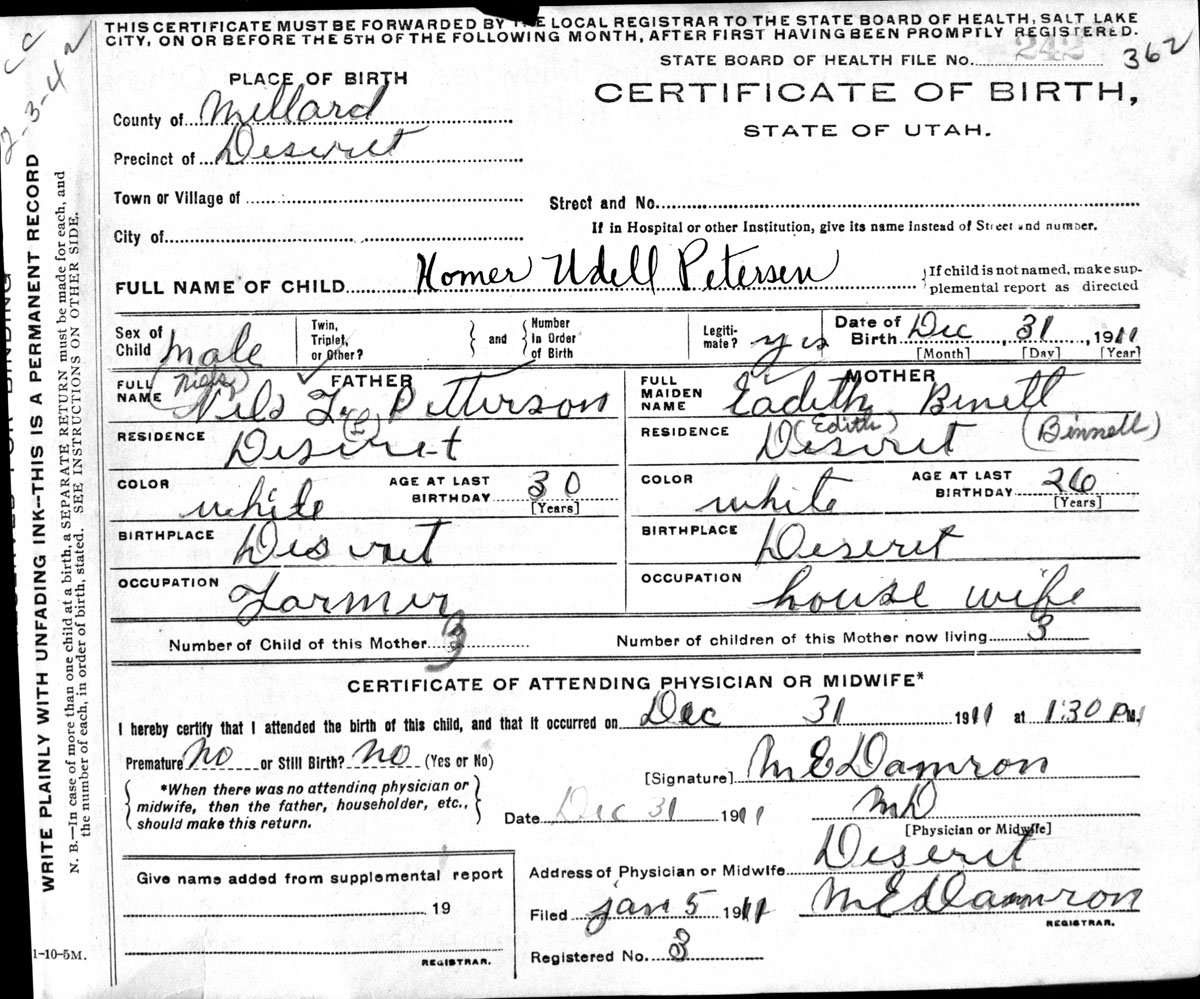 THIS CERTIFICATE MUST BE FORWARDED BY THE LOCAL REGISTRAR TO THE STATE BOARD OF HEALTH, SALT LAKE
CITY, ON OR BEFORE THE 5TH OF THE FOLLOWING MONTH, AFTER FIRST HAVING BEEN PROMPTLY REGISTERED.
STATE BOARD OF HEALTH FILE No. 242 362
PLACE OF BIRTH
CERTIFICATE OF BIRTH,
STATE OF UTAH.
County of Millard
Precinct of Deseret
Town or Village of
Street and No.
City of
If in Hospital or other Institution, give its name instead of Street and number.
FULL NAME OF CHILD Homer Udell Petersen
If child is not named, make sup-
plemental report as directed
Sex of Child male
Twin, Triplet, or Other?
and
Number In Order of Birth
Legiti-mate? yes
Date of Birth Dec, 31, 1911
[Month] [Day] [Year]
FATHER
FULL NAME Nils Petterson
(Niels)
RESIDENCE Desiret
COLOR white
AGE AT LAST BIRTHDAY 30
[Years]
BIRTHPLACE Diseret
OCCUPATION Farmer
MOTHER
FULL MAIDEN NAME Eadith Binett
(Edith) (Binnell)
RESIDENCE Deseret
COLOR white
AGE AT LAST BIRTHDAY 26
[Years]
BIRTHPLACE Deseret
OCCUPATION house wife
Number of Child of this Mother 3
Number of children of this Mother now living 3
CERTIFICATE OF ATTENDING PHYSICIAN OR MIDWIFE*
I hereby certify that I attended the birth of this child, and that it occurred on Dec 31 1911 at 1:30 P.M.
Premature No or Still Birth? No (Yes or No)
*When there was no attending physician or
midwife, then the father, householder, etc.,
should make this return.
[Signature] M E Damron
Date Dec 31 1911
MD
[Physician or Midwife]
Address of Physician or Midwife Deseret
Give name added from supplemental report
19
REGISTRAR.
Filed Jan 5 1911
M E Damron
REGISTRAR.
Registered No. 3
1-10-5M.
WRITE PLAINLY WITH UNFADING INK—THIS IS A PERMANENT RECORD
N. B.—In case of more than one child at a birth, a SEPARATE RETURN must be made for each, and
the number of each, in order of birth, stated. SEE INSTRUCTIONS ON OTHER SIDE.